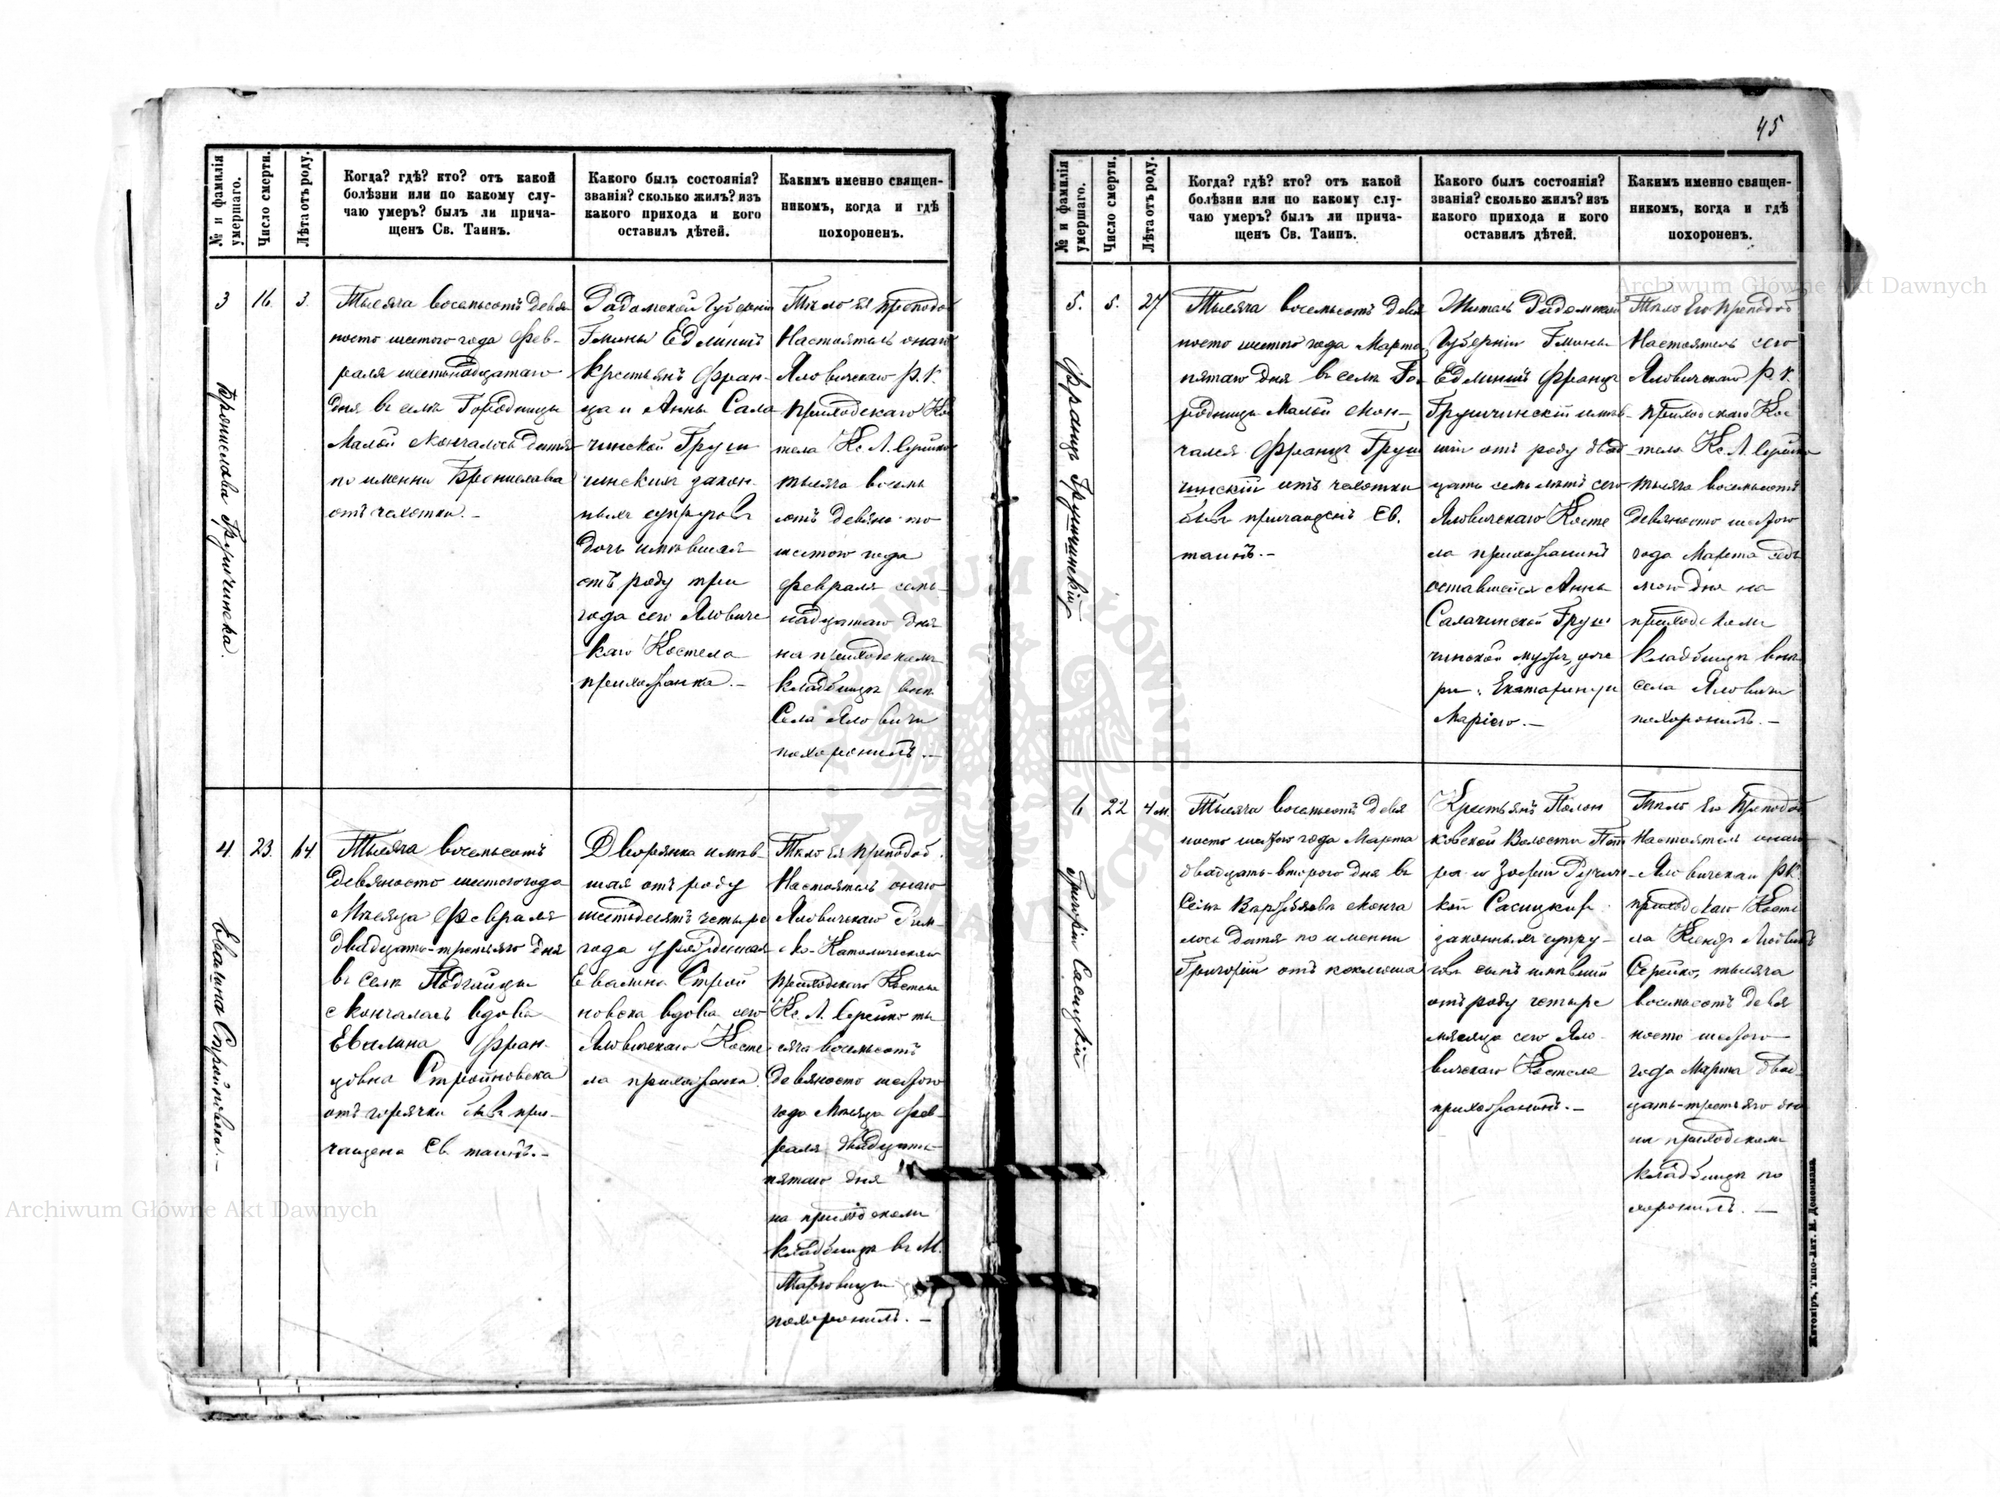 45
№ и фамилія умершаго.
Число смерти.
Лѣта отъ роду.
Когда? гдѣ? кто? отъ какой
болѣзни или по какому слу-
чаю умеръ? былъ ли прича-
щенъ Св. Таинъ.
Какого былъ состоянія?
званія? сколько жилъ? изъ
какого прихода и кого
оставилъ дѣтей.
Какимъ именно священ-
никомъ, когда и гдѣ
похороненъ.
3
Бронислава Грущинска.
16.
3.
Тысяча восемьсотъ девя
носто шестого года Фев-
раля шестнадцатаго
дня въ селѣ Городницы
Малой скончалось дитя
по имени Брониславa
отъ чахотки.-
Радомской Губерніи
Гмины Едлинскъ
Крестьянъ Фран-
ца и Анны Сала
чинской Грущ
чинскихъ закон-
ныхъ супруговъ
дочь имѣвшая
отъ роду три
года сего Яловиче
каго Костела
прихожанка.-
Тѣло ея преподоб
Настоятель онаго
Яловичскаго Р. К.
приходскаго Кос
тела Кс. Л. Серейко
тысяча восемь
сотъ девяносто
шестого года
февраля семь-
надцатаго дня
на приходскомъ
кладбищѣ внѣ
Села Яловичи
похоронилъ.-
4.
Евалина Стройновска.-
23.
64
Тысяча восемьсотъ
девяносто шестого года
Мѣсяца Февраля
двадцать-третьяго дня
въ селѣ Подгайцы
скончалась вдова
Евалина Фран-
цовна Стройновска
отъ горячки бывъ при-
чащена Св. таинъ.-
Дворянка имѣв-
шая отъ роду
шестьдесятъ четыре
года урожденная
Евалина Строй
новска вдова сего
Яловичскаго Косте
ла прихожанка.
Тѣло ея преподоб.
Настоятель онаго
Яловичскаго Рим-
ско-Католическаго
приходскаго Костела
Кс. Л. Серейко ты
сяча восемьсотъ
девяносто шестого
года Мѣсяца Фев-
раля двадцать
пятаго дня
на приходскомъ
кладбищѣ въ М.
Торговицы
похоронилъ.-
№ и фамилія умершаго.
Число смерти.
Лѣта отъ роду.
Когда? гдѣ? кто? отъ какой
болѣзни или по какому слу-
чаю умеръ? былъ ли прича-
щенъ Св. Таинъ.
Какого былъ состоянія?
званія? сколько жилъ? изъ
какого прихода и кого
оставилъ дѣтей.
Какимъ именно священ-
никомъ, когда и гдѣ
похороненъ.
5.
Францъ Грущчинскій
5.
27
Тысяча восемьсотъ девя
носто шестого года Марта
пятаго дня въ селѣ Го-
родницѣ Малой скон-
чался Францъ Грущ
чинскій отъ чахотки
бывъ причащенъ Св.
таинъ.-
Житель Радомской
Губерніи Гмины
Едлинскъ Францъ
Грущчинскій имѣв-
шій отъ роду двад
цать семь лѣтъ сего
Яловичскаго Косте
ла прихожанинъ
оставшейся Анны
Салачинской Грущ
чинской мужъ, доче
ри: Екатерину и
Марію.-
Тѣло Его преподоб
Настоятель сего
Яловичскаго Р. К.
приходскаго Кос
тела Кс. Л. Серейко
тысяча восемьсотъ
девяносто шестого
года Марта седь
мого дня на
приходскомъ
кладбищѣ внѣ
села Яловичи
похоронилъ.-
6
Григорій Сасицкій
22
4 м.
Тысяча восемьсотъ девя
носто шестого года Марта
двадцать-второго дня въ
Селѣ сконча
лось дитя по имени
Григорій отъ коклюша
Крестьянъ Полон
ковской Волости Пет
ра и Зофіи
кой Сасицкихъ
законныхъ супру-
говъ сынъ имѣвшій
отъ роду четыре
мѣсяца сего Яло-
вичскаго Костела
прихожанинъ.-
Тѣло Его Преподоб
Настоятель онаго
Яловичскаго Р.К.
приходскаго Косте
ла Ксендзъ Людвикъ
Серейко, тысяча
восемьсотъ девя
носто шестого
года Марта двад-
цать-третьяго дня
на приходскомъ
кладбищѣ по
хоронилъ.-
Житоміръ, Типо-Лит. М. Дененмана.
Archiwum Główne Akt Dawnych
Archiwum Główne Akt Dawnych
ARCHIWUM GŁÓWNE AKT DAWNYCH